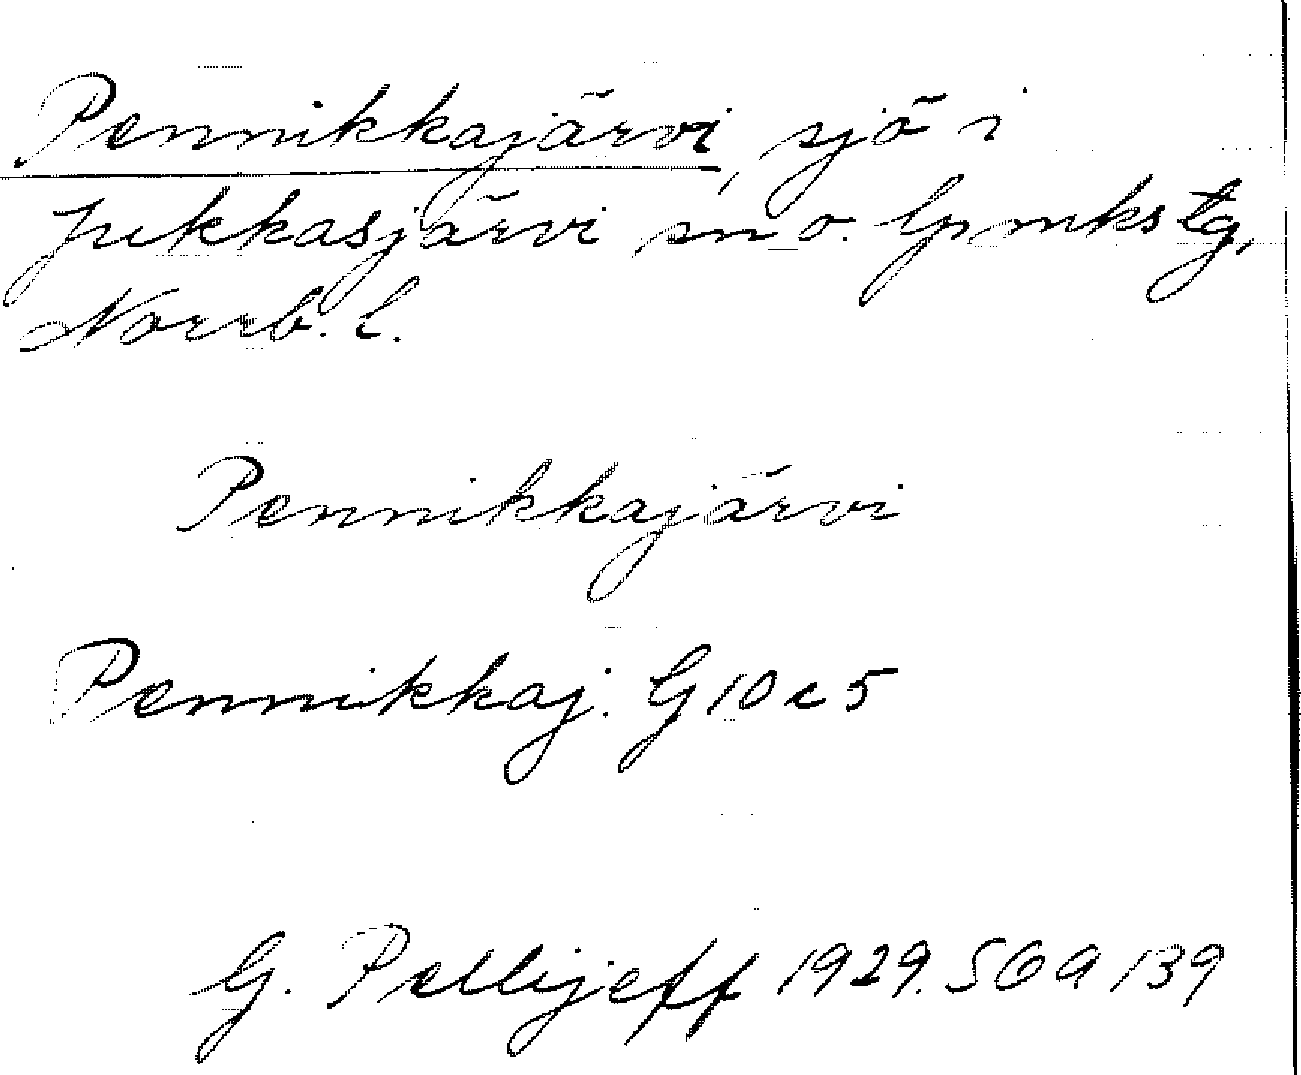 Pennikkajärvi, sjö i
Jukkasjärvi sn o. lpmkstg,
Norrb. l.
Pennikkajärvi
Pennikkaj. G 10 c 5
G. Pellijeff 1929. SOA 139